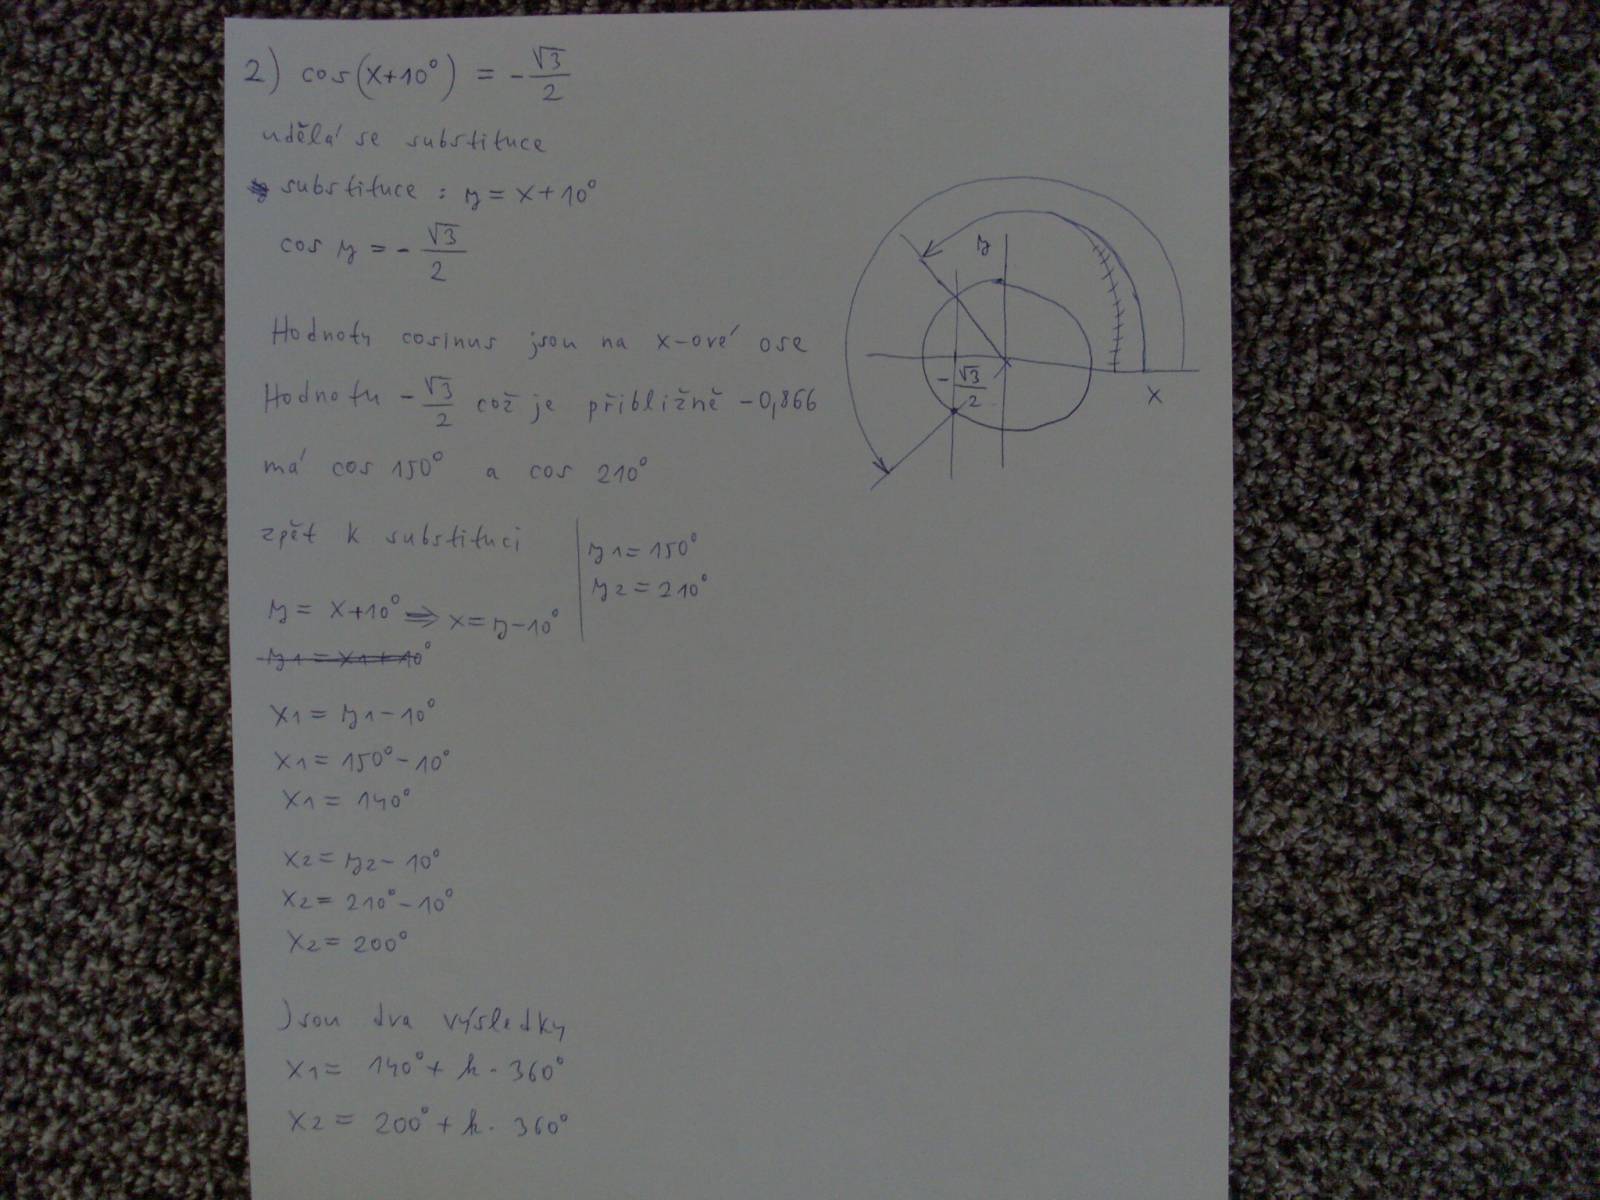 2) cos(x+10°) = -√3/2
udělá se substituce
substituce: y = x+10°
cos y = -√3/2
y
Hodnoty cosinus jsou na x-ové ose
-√3/2
x
Hodnotu -√3/2 což je přibližně -0,866
má cos 150° a cos 210°
zpět k substituci
y1 = 150°
y2 = 210°
y = x+10° ⇒ x = y-10°
y1 = x1 + 10°
x1 = y1 - 10°
x1 = 150° - 10°
x1 = 140°
x2 = y2 - 10°
x2 = 210° - 10°
x2 = 200°
Jsou dva výsledky
x1 = 140° + k · 360°
x2 = 200° + k · 360°